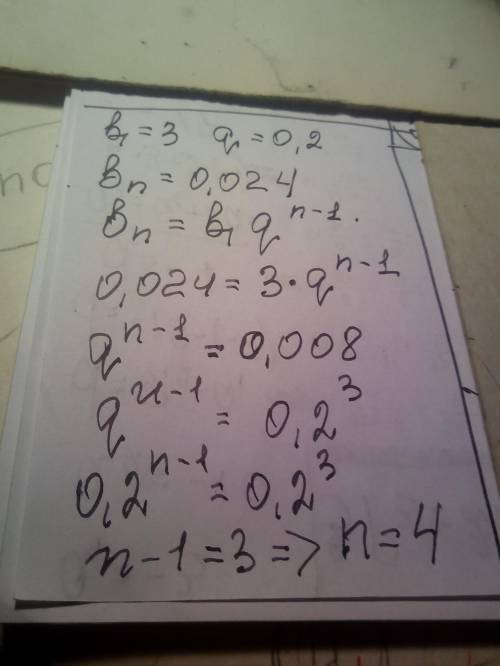 в₁ = 3 q = 0,2
вₙ = 0,024
вₙ = в₁ qⁿ⁻¹.
0,024 = 3 · qⁿ⁻¹
qⁿ⁻¹ = 0,008
qⁿ⁻¹ = 0,2³
0,2ⁿ⁻¹ = 0,2³
n-1=3 => n=4